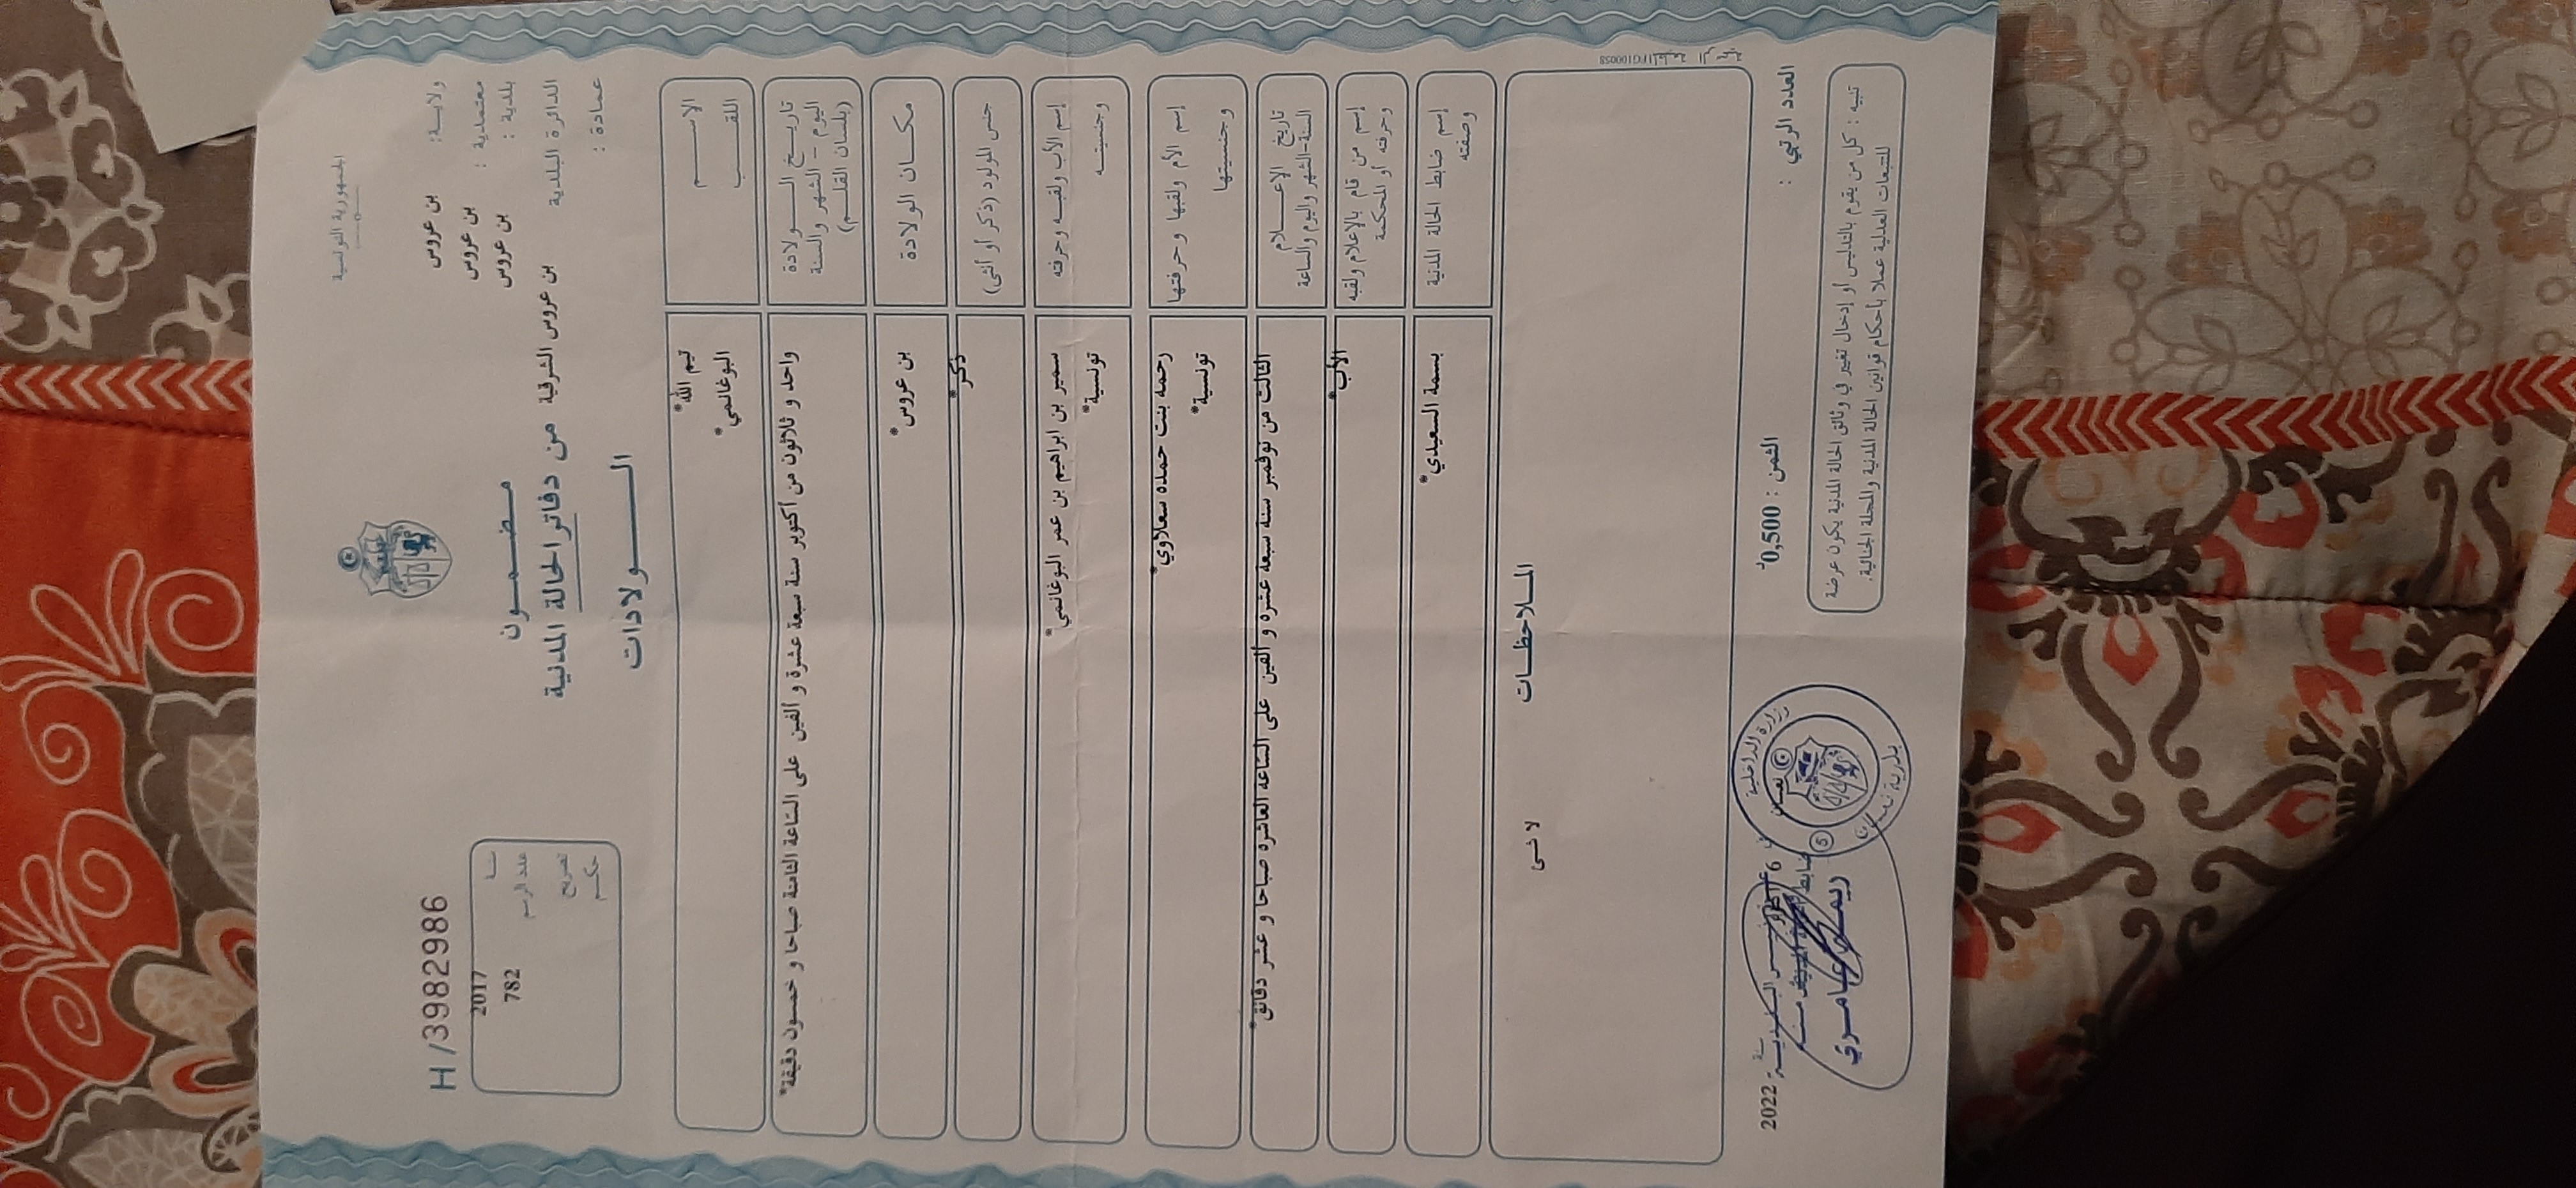 الجمهورية التونسية
H /3982986
ولايـــة: بن عروس
معتمدية : بن عروس
بلدية : بن عروس
الدائرة البلدية بن عروس الشرقية
عمادة :
سنــة 2017
عدد الرسم 782
تصريح
حكـم
مـضـمـــون
من دفاتر الحالة المدنية
الـــــولادات
الإســـــم تيم الله*
اللقـــــب البوغانمي*
تاريـــخ الـــــولادة
اليوم – الشهر والسنة
(بلسان القلـــم)
واحد و ثلاثون من أكتوبر سنة سبعة عشرة و ألفين على الساعة الثامنة صباحا و خمسون دقيقة*
مكـــان الولادة بن عروس*
جنس المولود (ذكر أو أنثى) ذكر*
إسم الأب ولقبـه وحرفته سمير بن ابراهيم بن عمر البوغانمي*
وجنسيتـــه تونسية*
إسم الأم ولقبها وحرفتها رحمه بنت حمده سعلاوي*
وجنسيتها تونسية*
تاريخ الإعـــلام
السنة-الشهر واليوم والساعة
الثالث من نوفمبر سنة سبعة عشرة و ألفين على الساعة العاشرة صباحا و عشر دقائق*
إسم من قام بالإعلام ولقبه
وحرفته أو المحكمة
الأب*
إسم ضابط الحالة المدنية بسمة السعيدي*
وصفته
المـلاحظـــات
لا شئ
العدد الرتبي :
الثمن : 0,500د
سنة 2022
تنبيه : كل من يقوم بالتدليس أو إدخال تغيير في وثائق الحالة المدنية يكون عرضة
للتتبعات العدلية عملا بأحكام قوانين الحالة المدنية والمجلة الجنائية.
وزارة الداخلية